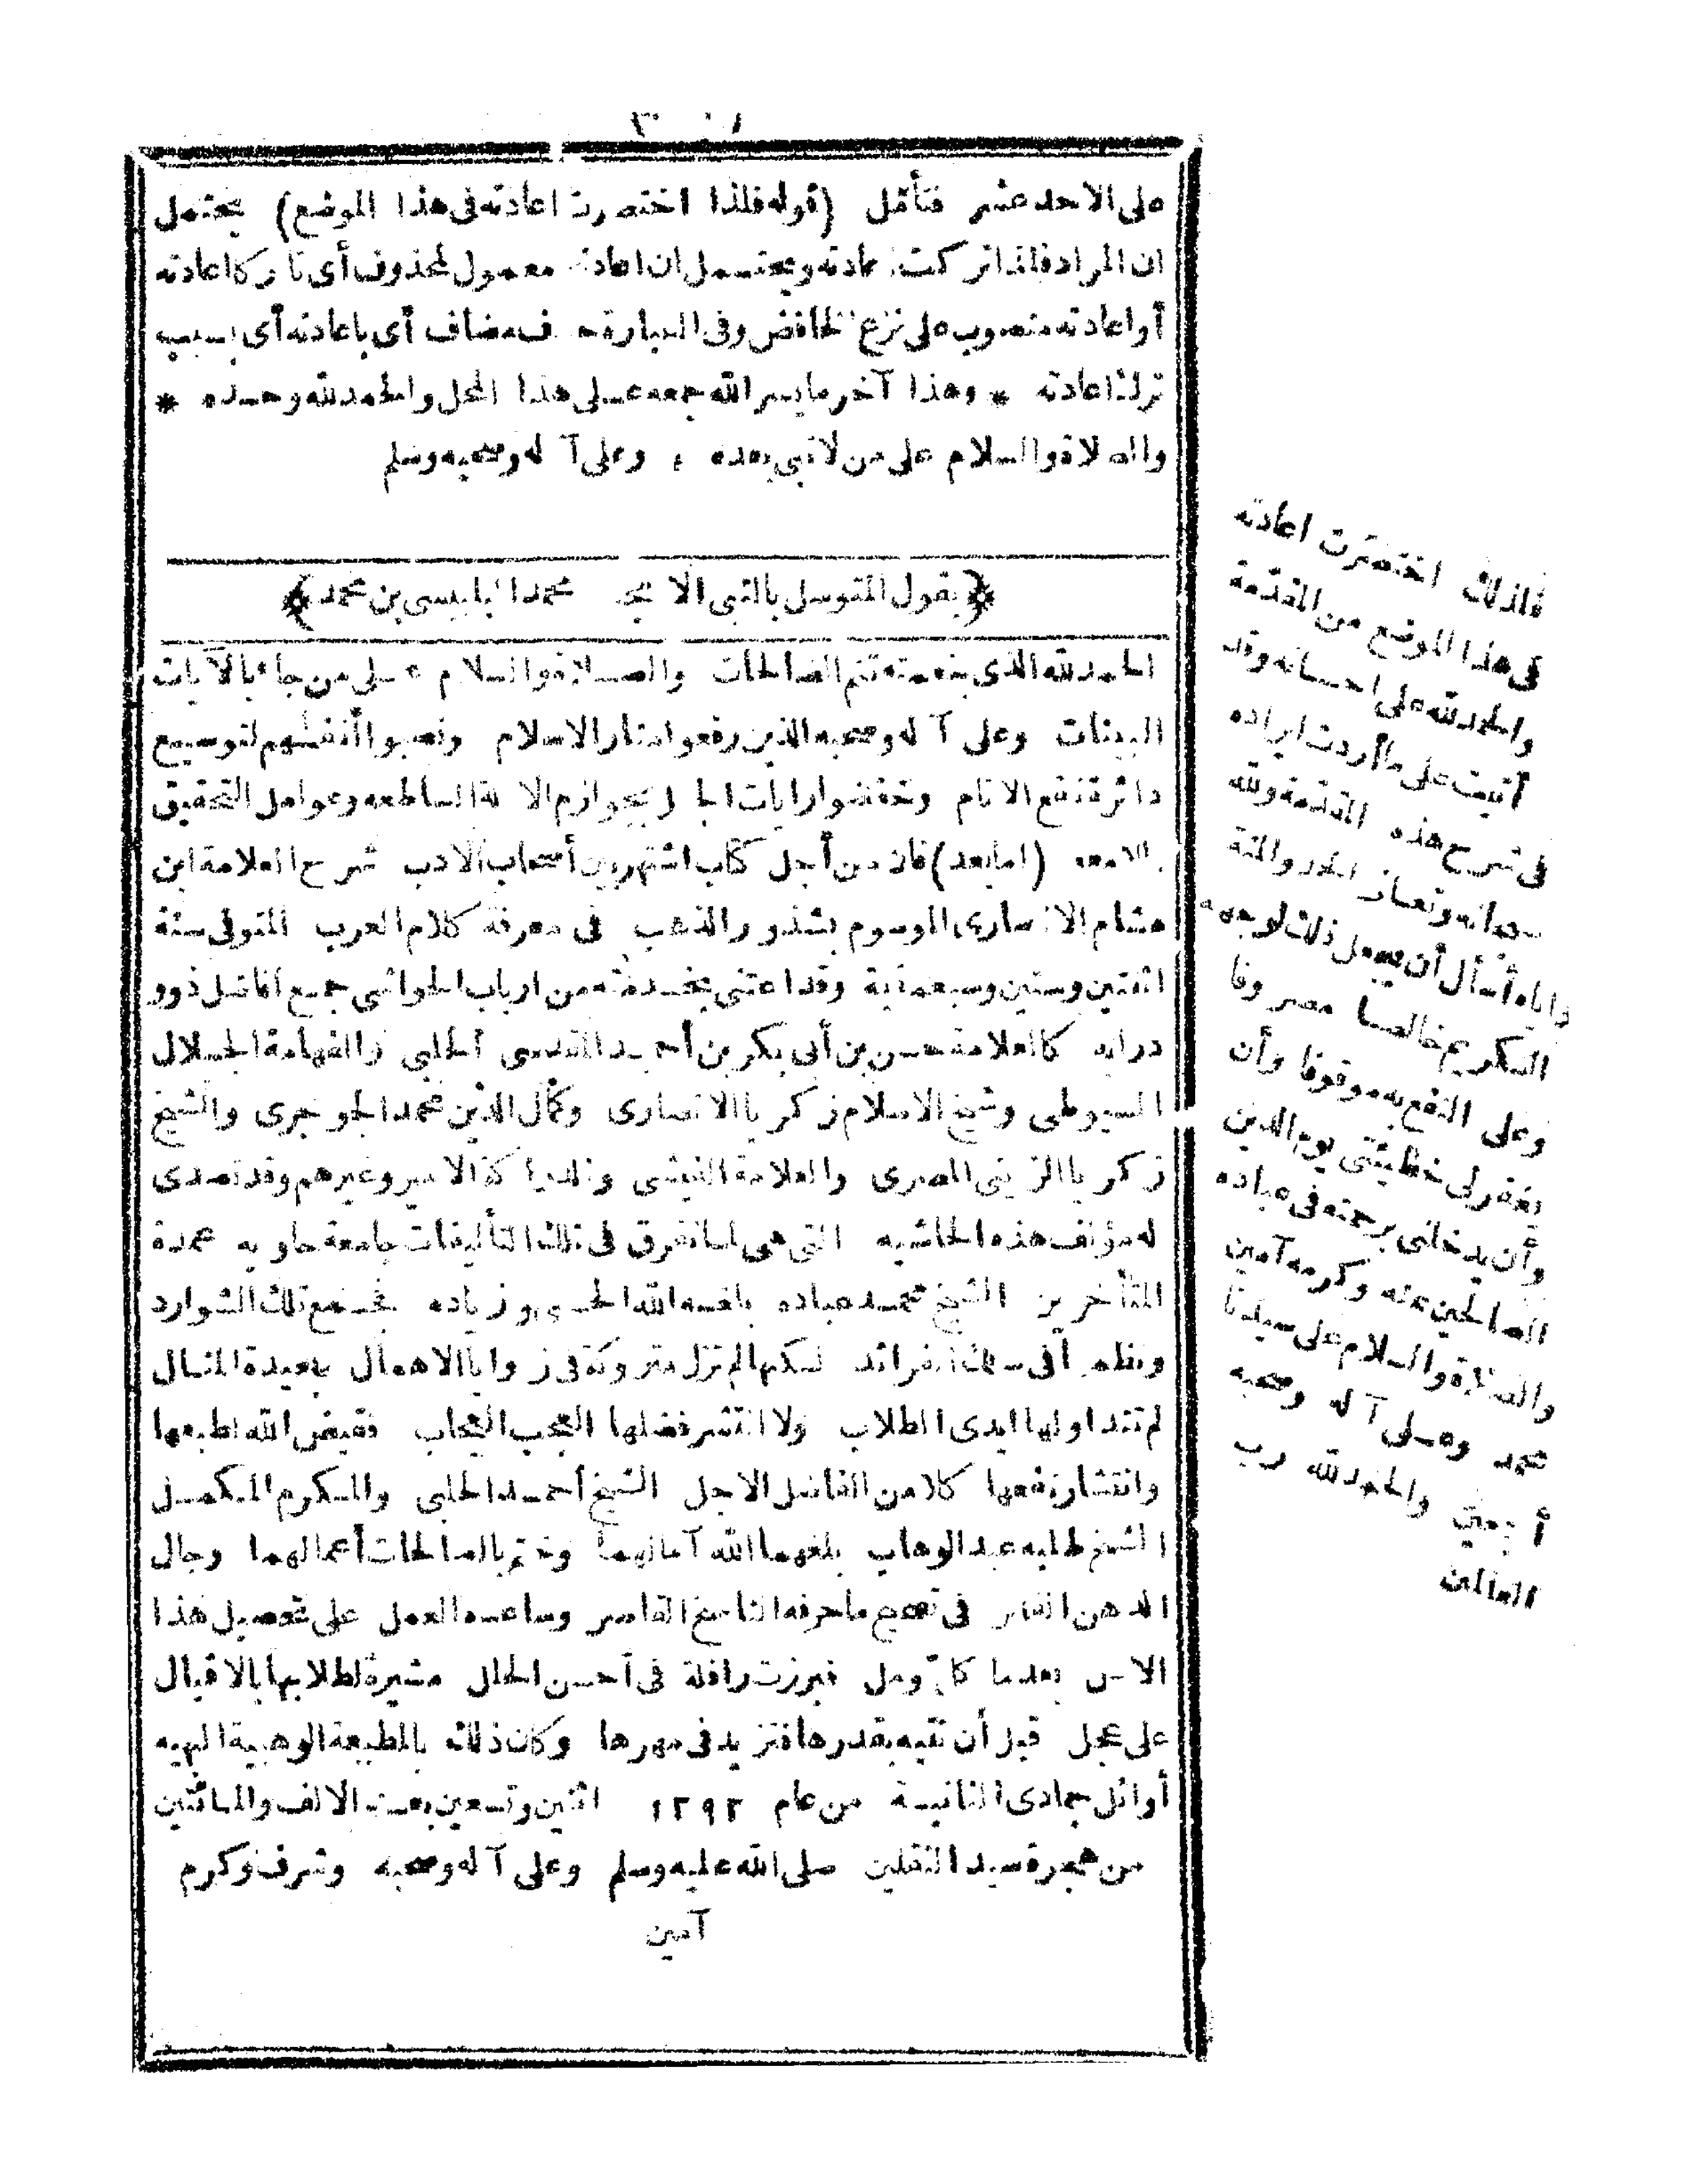 على الاحد عشر فتأمّل (قوله فلذا اختصرت اعادته فى هذا الموضع) يحتمل
ان المراد فلذا تركت اعادته ويحتمل ان اعادته معمول لمحذوف أى تاركا اعادته
أو اعادته منصوب على نزع الخافض وفى العبارة حذف مضاف أى باعادته أى بسبب
ترك اعادته * وهذا آخر ما يسر الله جمعه على هذا المحل والحمد لله وحده *
والصلاة والسلام على من لا نبى بعده * وعلى آله وصحبه وسلم
﴿يقول المتوسل بالنبى الامجد محمد البلبيسى بن محمد﴾
الحمد لله الذى بنعمته تتم الصالحات والصلاة والسلام على من جاء بالآيات
البينات وعلى آله وصحبه الذين رفعوا منار الاسلام ونصبوا أنفسهم لتوسيع
دائرة نفع الانام وخفضوا رايات الجهل بجوازم الادلة الساطعه وعوامل التحقيق
اللامعه (اما بعد) فان من أجل كتاب اشتهر بين أصحاب الادب شرح العلامة ابن
هشام الانصارى الموسوم بشذور الذهب فى معرفة كلام العرب المتوفى سنة
اثنتين وستين وسبعمائة وقد اعتنى بخدمته من ارباب الحواشى جمع أفاضل ذوو
درايه كالعلامة حسن بن أبى بكر بن أحمد القدسى الحلبى والفهامة الجلال
السيوطى وشيخ الاسلام زكريا الانصارى وكمال الدين محمد الجوجرى والشيخ
زكريا الزينى المصرى والعلامة الفيشى والعلامة الامير وغيرهم وقد تصدى
له مؤلف هذه الحاشيه التى هى لما تفرق فى تلك التأليفات جامعة حاويه عمدة
المتأخرين الشيخ محمد عباده بلغه الله الحسنى وزياده فجمع تلك الشوارد
ونظمها فى سلك الفرائد لكنها لم تزل متروكة فى زوايا الاهمال بعيدة المنال
لم تتداولها ايدى الطلاب ولا انتشر فضلها العجب العجاب فقيض الله لطبعها
وانتشار نفعها كلا من الفاضل الاجل الشيخ أحمد الحلبى والمكرم المكمل
الشيخ طلبه عبد الوهاب بلغهما الله آمالهما وختم بالصالحات أعمالهما وجال
الذهن الفاتر فى تصحيح ما حرفه الناسخ القاصر وساعده العمل على تحصيل هذا
الامل بعدما كلّ ومل فبرزت رافلة فى أحسن الحلل مشيرة لطلابها بالاقبال
على عجل قبل أن تتيه بقدرها فتزيد فى مهرها وكان ذلك بالمطبعة الوهبية البهيه
أوائل جمادى الثانية من عام ١٢٩٢ اثنين وتسعين بعد الالف والمائتين
من هجرة سيد الثقلين صلى الله عليه وسلم وعلى آله وصحبه وشرف وكرم
آمين
فلذلك اختصرت اعادته
فى هذا الموضع من المقدّمة
والحمد لله على احسانه وقد
أتيت على ما أردت ايراده
فى شرح هذه المقدّمة ولله
سبحانه وتعالى الحمد والمنة
واياه أسأل أن يجعل ذلك لوجهه
الكريم خالصا مصروفا
وعلى النفع به موقوفا وأن
يغفر لى خطيئتى يوم الدين
وأن يدخلنى برحمته فى عباده
الصالحين بمنه وكرمه آمين
والصلاة والسلام على سيدنا
محمد وعلى آله وصحبه
أجمعين والحمد لله رب
العالمين